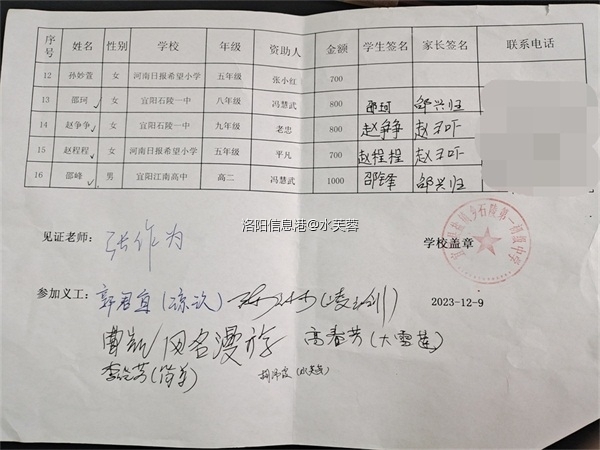 序号 姓名 性别 学校 年级 资助人 金额 学生签名 家长签名 联系电话
12 孙妙萱 女 河南日报希望小学 五年级 张小红 700
13 邵珂 女 宜阳石陵一中 八年级 冯慧武 800 邵珂
14 赵争争 女 宜阳石陵一中 九年级 老忠 800 赵争争
15 赵程程 女 河南日报希望小学 五年级 平凡 700 赵程程
16 邵峰 男 宜阳江南高中 高二 冯慧武 1000
洛阳信息港@水芙蓉
见证老师: 张作为
学校盖章
石陵第一初级中学
参加义工:
2023-12-9
网名漫游 高春芳(大雪莲)
(水芙蓉)